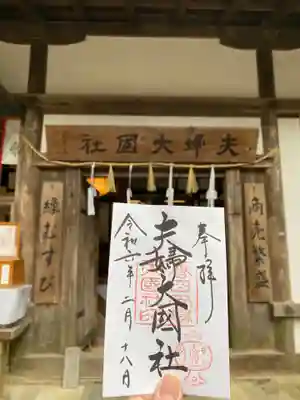 夫婦大國社
縁むすび
商売繁盛
奉拝
夫婦大國社
令和六年二月十八日